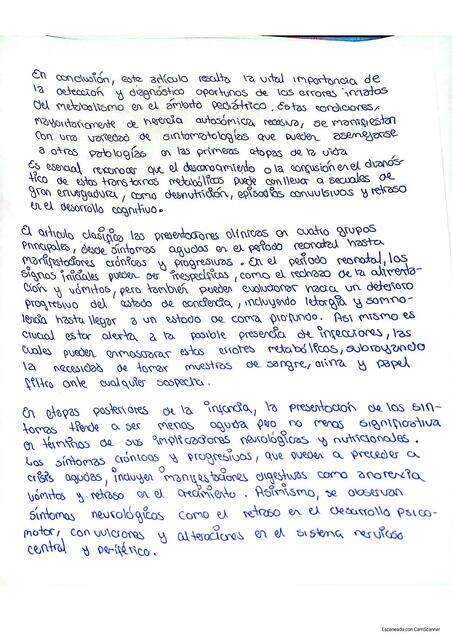 En conclusión, este artículo resalta la vital importancia de
la detección y diagnóstico oportunos de los errores innatos
del metabolismo en el ámbito pediátrico. Estas condiciones,
mayoritariamente de herencia autosómica recesiva, se manifiestan
con una variedad de sintomatologías que pueden asemejarse
a otras patologías en las primeras etapas de la vida
Es esencial reconocer que el desconocimiento o la confusión en el diagnós-
tico de estos transtornos metabólicos puede conllevar a secuelas de
gran envergadura, como desnutrición, episodios convulsivos y retraso
en el desarrollo cognitivo.
El artículo clasifica las presentaciones clínicas en cuatro grupos
principales, desde síntomas agudos en el período neonatal hasta
manifestaciones crónicas y progresivas. En el período neonatal, los
signos iniciales pueden ser inespecíficos, como el rechazo de la alimenta-
ción y vómitos, pero también pueden evolucionar hacia un deterioro
progresivo del estado de conciencia, incluyendo letargia y somno-
lencia hasta llegar a un estado de coma profundo. Asi mismo es
crucial estar alerta a la posible presencia de infecciones, las
cuales pueden enmascarar estos errores metabólicos, subrayando
la necesidad de tomar muestras de sangre, orina y papel
filtro ante cualquier sospecha.
En etapas posteriores de la infancia, la presentación de los sín-
tomas tiende a ser menos aguda pero no menos significativa
en términos de sus implicaciones neurológicas y nutricionales.
Los síntomas crónicos y progresivos, que pueden a preceder a
crisis agudas, incluyen manifestaciones digestivas como anorexia
vómitos y retraso en el crecimiento. Asimismo, se observan
síntomas neurológicos como el retraso en el desarrollo psico-
motor, convulciones y alteraciones en el sistema nervioso
central y periférico.
Escaneado con CamScanner